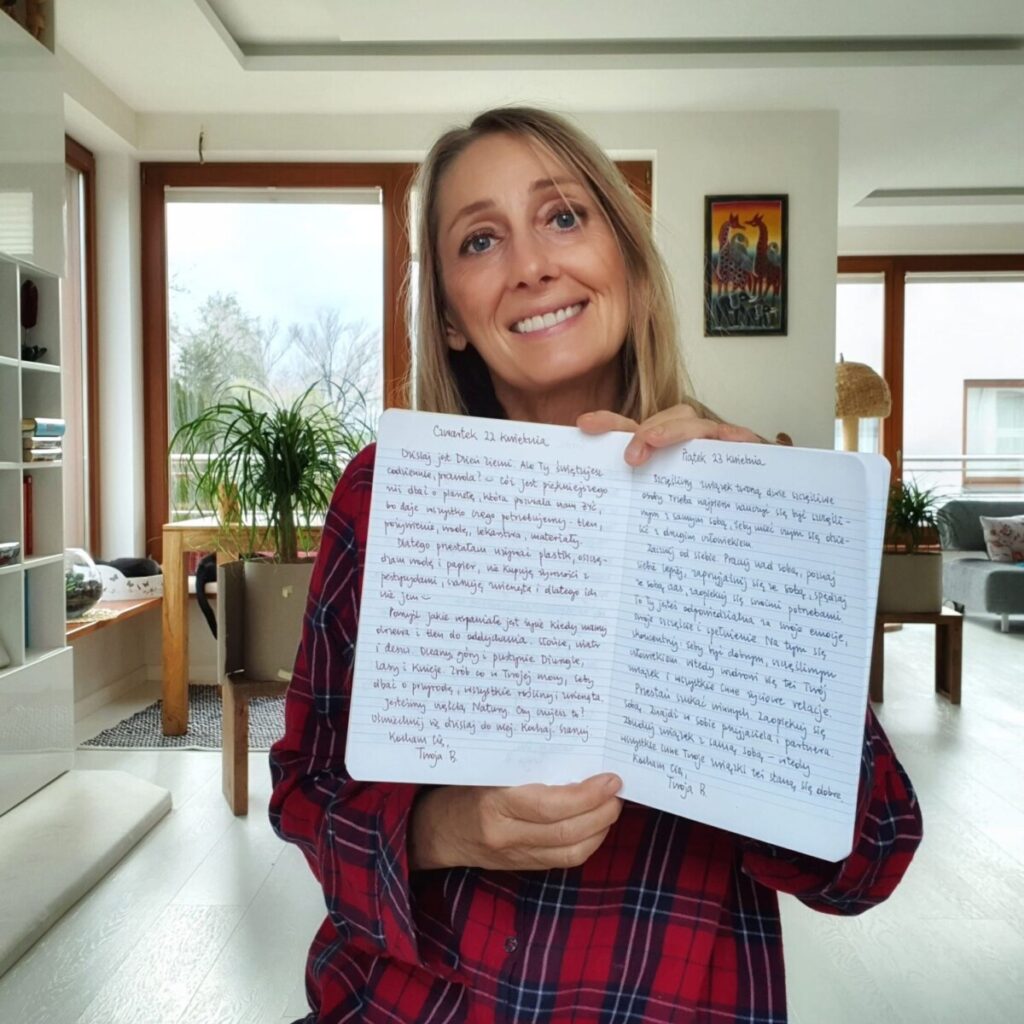 Czwartek 22 kwietnia
Dzisiaj jest Dzień Ziemi. Ale Ty świętujesz
codziennie, prawda? Cóż jest piękniejszego
niż dbać o planetę, która pozwala nam żyć,
bo daje wszystko czego potrzebujemy - tlen,
pożywienie, wodę, lekarstwa, materiały.
Dlatego przestałam używać plastik, oszczę-
dzam wodę i papier, nie kupuję żywności z
pestycydami, szanuję zwierzęta i dlatego ich
nie jem
Pomyśl jakie wspaniałe jest życie kiedy mamy
drzewa i tlen do oddychania. Słońce, wiatr
i deszcz. Oceany, góry i pustynie. Dżungle,
lasy i knieje. Zrób co w Twojej mocy, żeby
dbać o przyrodę, wszystkie rośliny i zwierzęta.
Jesteśmy częścią Natury. Czy czujesz to?
Uśmiechnij się dzisiaj do niej. Kochaj. Szanuj
Kocham Cię,
Twoja B.
Piątek 23 kwietnia
Szczęśliwy związek tworzą dwie szczęśliwe
osoby. Trzeba najpierw nauczyć się być szczęśli-
wym z samym sobą, żeby móc tym się dzie-
lić z drugim człowiekiem.
Zacznij od siebie. Pracuj nad sobą, poznaj
siebie lepiej, zaprzyjaźnij się ze sobą, spędzaj
ze sobą czas, zaopiekuj się swoimi potrzebami.
To Ty jesteś odpowiedzialna za swoje emocje,
swoje szczęście i spełnienie. Na tym się
skoncentruj, żeby być dobrym, szczęśliwym
człowiekiem wtedy uzdrowi się też Twój
związek i wszystkie inne życiowe relacje.
Przestań szukać winnych. Zaopiekuj się
sobą, znajdź w sobie przyjaciela i partnera.
Zbuduj związek z samą sobą - wtedy
wszystkie inne Twoje związki też staną się dobre.
Kocham Cię,
Twoja B.